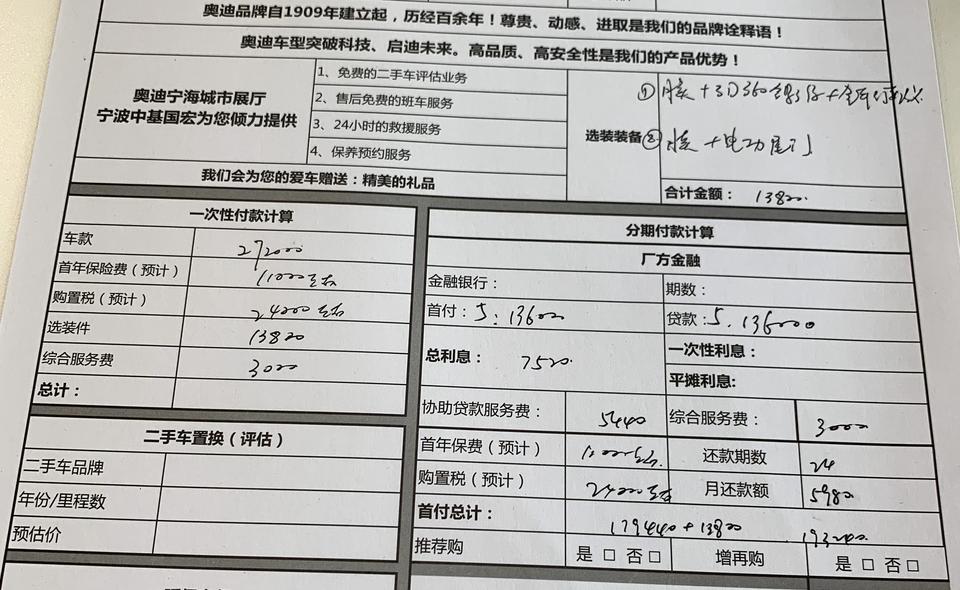 奥迪品牌自1909年建立起，历经百余年！尊贵、动感、进取是我们的品牌诠释语！
奥迪车型突破科技、启迪未来。高品质、高安全性是我们的产品优势！
奥迪宁海城市展厅
宁波中基国宏为您倾力提供
1、免费的二手车评估业务
2、售后免费的班车服务
3、24小时的救援服务
4、保养预约服务
我们会为您的爱车赠送：精美的礼品
选装装备
① 膜+3D360全影像+全车
② 膜+电动尾门
合计金额： 13800.
一次性付款计算
车款 272000
首年保险费（预计） 11000左右
购置税（预计） 24000左右
选装件 13800
综合服务费 3000
总计：
二手车置换（评估）
二手车品牌
年份/里程数
预估价
分期付款计算
厂方金融
金融银行： 期数：
首付：5. 13600 贷款：5. 136000
总利息： 7520. 一次性利息：
平摊利息:
协助贷款服务费： 5440 综合服务费： 3000
首年保费（预计） 11000左右 还款期数 24
购置税（预计） 24000左右 月还款额 5980
首付总计： 179440+13800 193240.
推荐购 是 □ 否 □ 增再购 是 □ 否 □